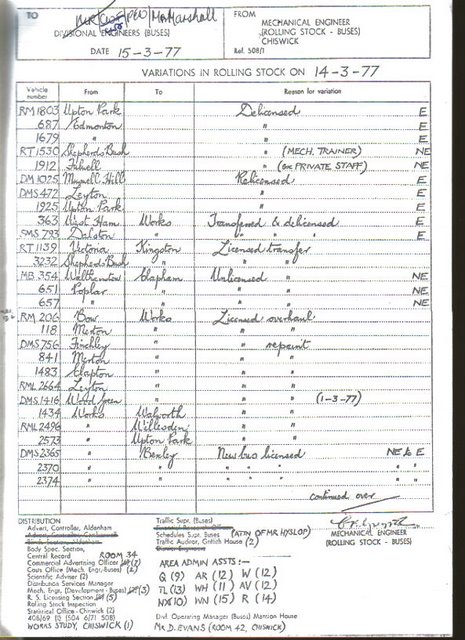 TO
PEW / Mr Marshall
DIVISIONAL ENGINEERS (BUSES)
DATE 15-3-77
FROM
MECHANICAL ENGINEER
(ROLLING STOCK - BUSES)
CHISWICK
Ref. 508/1
VARIATIONS IN ROLLING STOCK ON 14-3-77
Vehicle number From To Reason for variation
RM 1803 Upton Park Delicensed E
687 Edmonton " E
1679 " " E
RT 1530 Shepherds Bush " (MECH. TRAINER) NE
1912 Fulwell " (ex PRIVATE STAFF) NE
DM 1025 Muswell Hill Relicensed E
DMS 472 Leyton " E
1925 Upton Park " E
363 West Ham Works Transferred & delicensed E
SMS 793 Dalston " " " " E
RT 1139 Victoria Kingston Licensed transfer
3232 Shepherds Bush " " "
MB 354 Walthamstow Clapham Unlicensed " NE
651 Poplar " " " NE
657 " " " " NE
RM 206 Bow Works Licensed overhaul
118 Merton " " "
DMS 756 Finchley " " repaint
841 Merton " " "
1483 Clapton " " "
RML 2664 Leyton " " "
DMS 1416 Wood Green " " " (1-3-77)
1434 Works Walworth " "
RML 2496 " Willesden " "
2573 " Upton Park " "
DMS 2365 " Bexley New bus licensed NE to E
2370 " " " " " " "
2374 " " " " " " "
continued over
MECHANICAL ENGINEER
(ROLLING STOCK - BUSES)
DISTRIBUTION
Advert. Controller, Aldenham
Body Spec. Section,
Central Record ROOM 34
Commercial Advertising Officer (2)
Cats Office (Mech. Engr.-Buses) (2)
Scientific Adviser (2)
Distribution Services Manager
Mech. Engr. (Development - Buses) (3)
R. S. Licensing Section (5)
Rolling Stock Inspection
Statistical Office (2)
408/69 (1) 504 6/71 508)
WORKS STUDY, CHISWICK (1)
Traffic Supr. (Buses)
Schedules Supt. Buses (ATTN OF MR HYSLOP)
Traffic Auditor, Griffith House (2)
AREA ADMIN ASSTS :-
Q (9) AR (12) W (12)
TL (13) WH (11) AV (12)
HX (10) WN (15) R (14)
Divl. Operating Manager (Buses) Mansion House
MR D. EVANS (ROOM 42, CHISWICK)